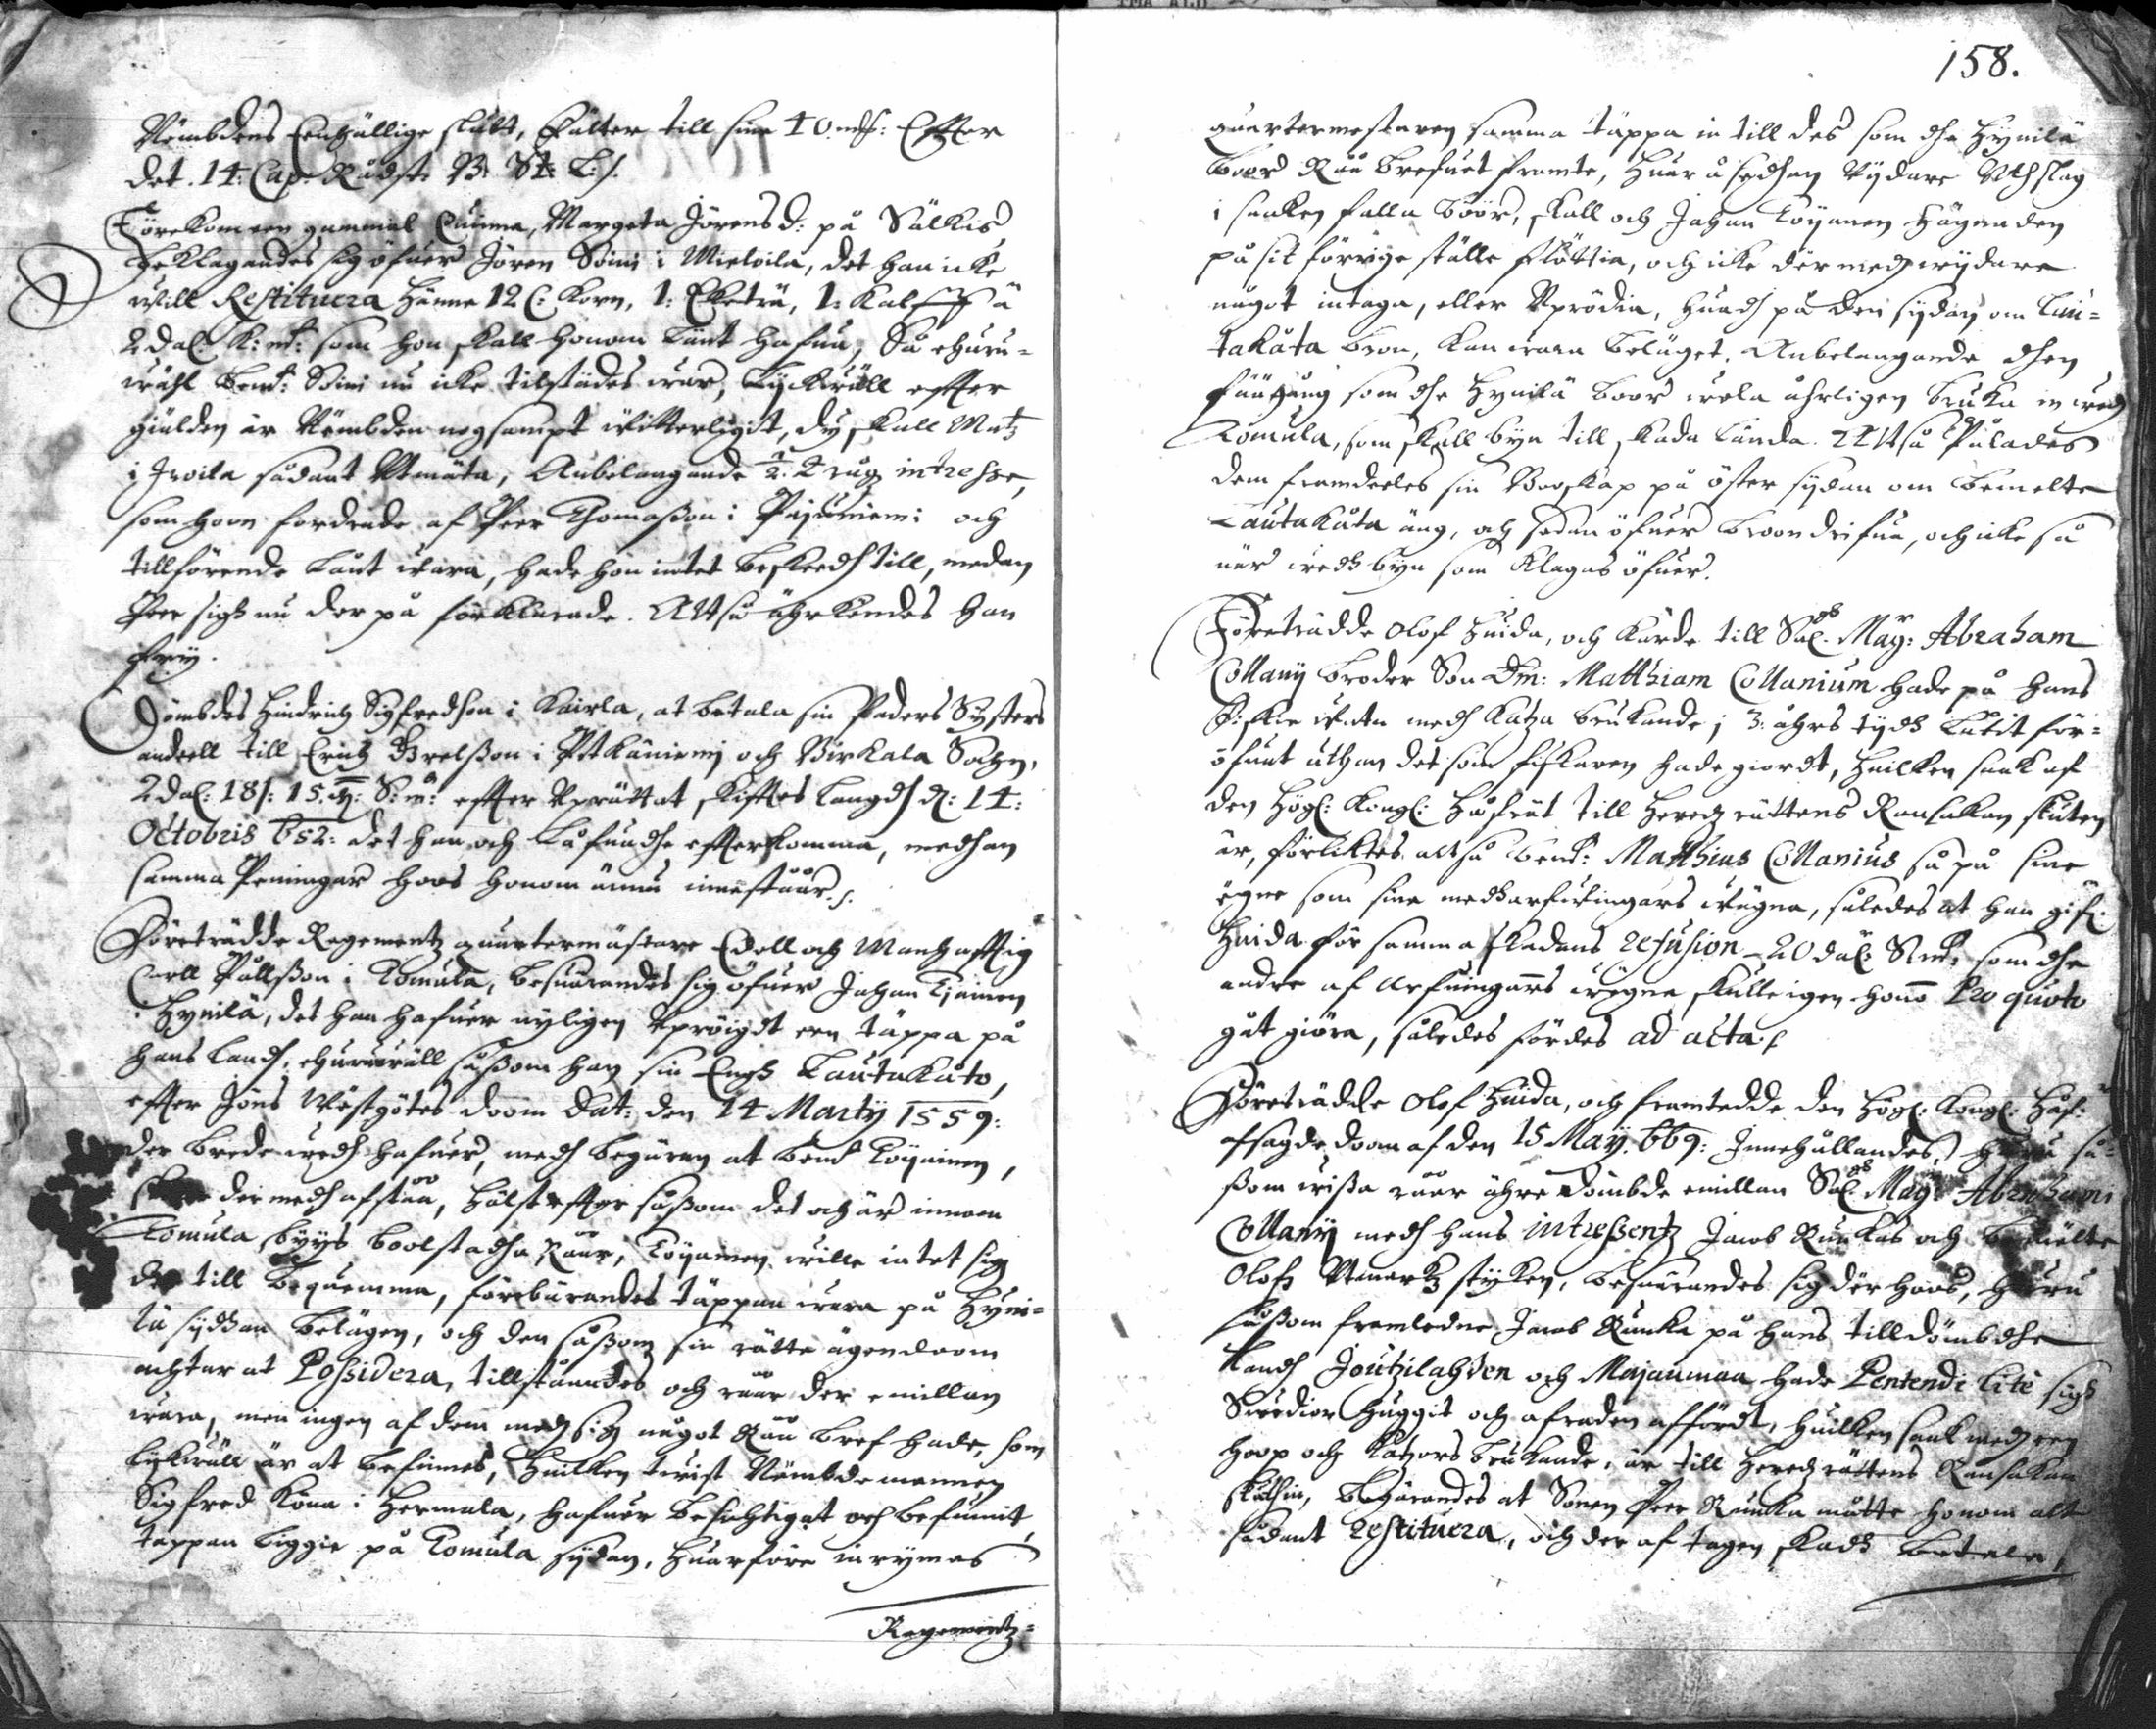 Nämbdens Eenhällige slutt, Fälter till sine 40 mk: Effter
det. 14. Cap. Rådst. B. St: L:
Förekom een gammal Quinna, Margeta Jörensd: på Sälkis,
beklagandes sig öfuer Jören Soini i Mieloila, det han icke
will Restituera hänne 12 C: Korn, 1: Eketrä, 1: Kalf á
2 dal: K:mt: som hon skall honom länt hafua, Så ehuru-
wähl bem:te Soini nu icke tilstädes war, Lijkwäll effter
giälden är Nämbden nogsampt witterligit, dy skall Matz
i Iwoila sådant Vtmäta, Anbelangande 1/2 t råg intresse,
som hoon fordrade af Peer Thomasson i Pajuniemi och
tillförende länt wara, hade hon intet beskeedh till, medan
Peer sigh nu der på förklarade. Altså ährkendes han
frij.
Dömbdes Hindrich Sigfredhson i Kairla, at betala sin Faders Systers
andeell till Erich Grelsson i Pitkäniemj och Birkala Sochn,
2 dal: 18 s: 15 : S:mt: effter Vprättat skifftes längdh d: 14:
Octobris 652: det han och låfuadhe effterkomma, medhan
samma Peningar hoos honom ännu innestååår.
Företrädde Regementz quartermästare Edell och Manhafftig
Carll Pållsson i Tomula, besuärandes sig öfuer Johan Toijainen
i Hynilä, det han hafuer nyligen Vprögdt een täppa på
hans landh, ehuruwäll såssom han sin Engh Lautakåto,
effter Jöns Wästgötes doom Dat: den 14 Martij 1559:
der brede wedh hafuer, medh begäran at bem:te Toijainen,
der medh afstää, hälst effter såssom det och är innom
Tomula byys boolstadha Råår, Toijainen wille intet sig
der till bequemma, förebärandes täppan wara på Hyni-
lä sydhan belägen, och den såssom sin rätte ägendoom
achtar at Possidera, tillståandes och råår der emillan
wara, men ingen af dem medh sigh något Råå bref hade, som
lijkwäll är at befinnes, Huilken twist Nämbdemannen
Sigfred Köna i Hermala, hafuer besichtigat och befunnit
täppan liggie på Tomula sydan, huarföre inrymes
Regementz-
158.
quartermestaren samma täppa in till des som dhe Hynilä
boar Råå brefuet framte, huar å sedhan wijdare Vthslag
i saaken falla böör, skall och Johan Toijanen hägnaden
på sit förrige ställe flöttia, och icke der medh wijdare
något intaga, eller Vprödia, huadh på den sydan om Lau-
takåta broon, kan wara beläget. Anbelangande dhen
fäägång som dhe Hynilä boor wela åhrligen bruka in wedh
Tomula, som skall byn till skada lända. Altså Pålades
dem framdeeles sin Booskap på öster sydan om bemelte
Lautakåta äng, och sedan öfuer broon drifua, och icke så
när wedh byn som klagas öfuer.
Företrädde Olof Huida, och kärde till Sal: Mag:r Abraham
Collanij broder Son Dn: Matthiam Collanium hade på hans
Fiskie watn medh katza brukande i 3: åhrs tijdh låtit för-
öfuat uthan det som fiskaren hade giordt, huilken saak af
den Högl: Kongl: Håfrät till Heredz rättens Ransakan skuten
är, förliktes altså bem:te Matthias Collanius så på sine
egne som sine medharfuingars wägna, således at han gifr
Huida för samma skadans refusion 20 dal: S:mt, som dhe
andre af arfuingars wägna skulle igen honom Pro quoto
gåt giöra, således fördes ad acta.
Företrädde Olof Huida, och framtedde den Högl: Kongl: Håf:
afsagde doom af den 15 Maij. 669: Innehållandes, huru så-
ssom wissa råår ähre dömbde emillan Sal: Mag:r Abrahami
Collanij medh hans intressentz Jacob Runkas och bemälte
Olofz Vtmarkz stycken, besuärandes sig der hoos, huru
såssom framledne Jacob Runka på hans tilldömbdhe
landh Joutzilahden och Majanmaa hade Pentende lite sigh
Suedior huggit och afraden affördt, huilken saak medh een
hoop och katzors brukande, är till Heredz rättens Ransakan
skuthin, begärandes at Sonen Peer Runka måtte honom alt
sådant restituera, och der af tagen skadh betala,